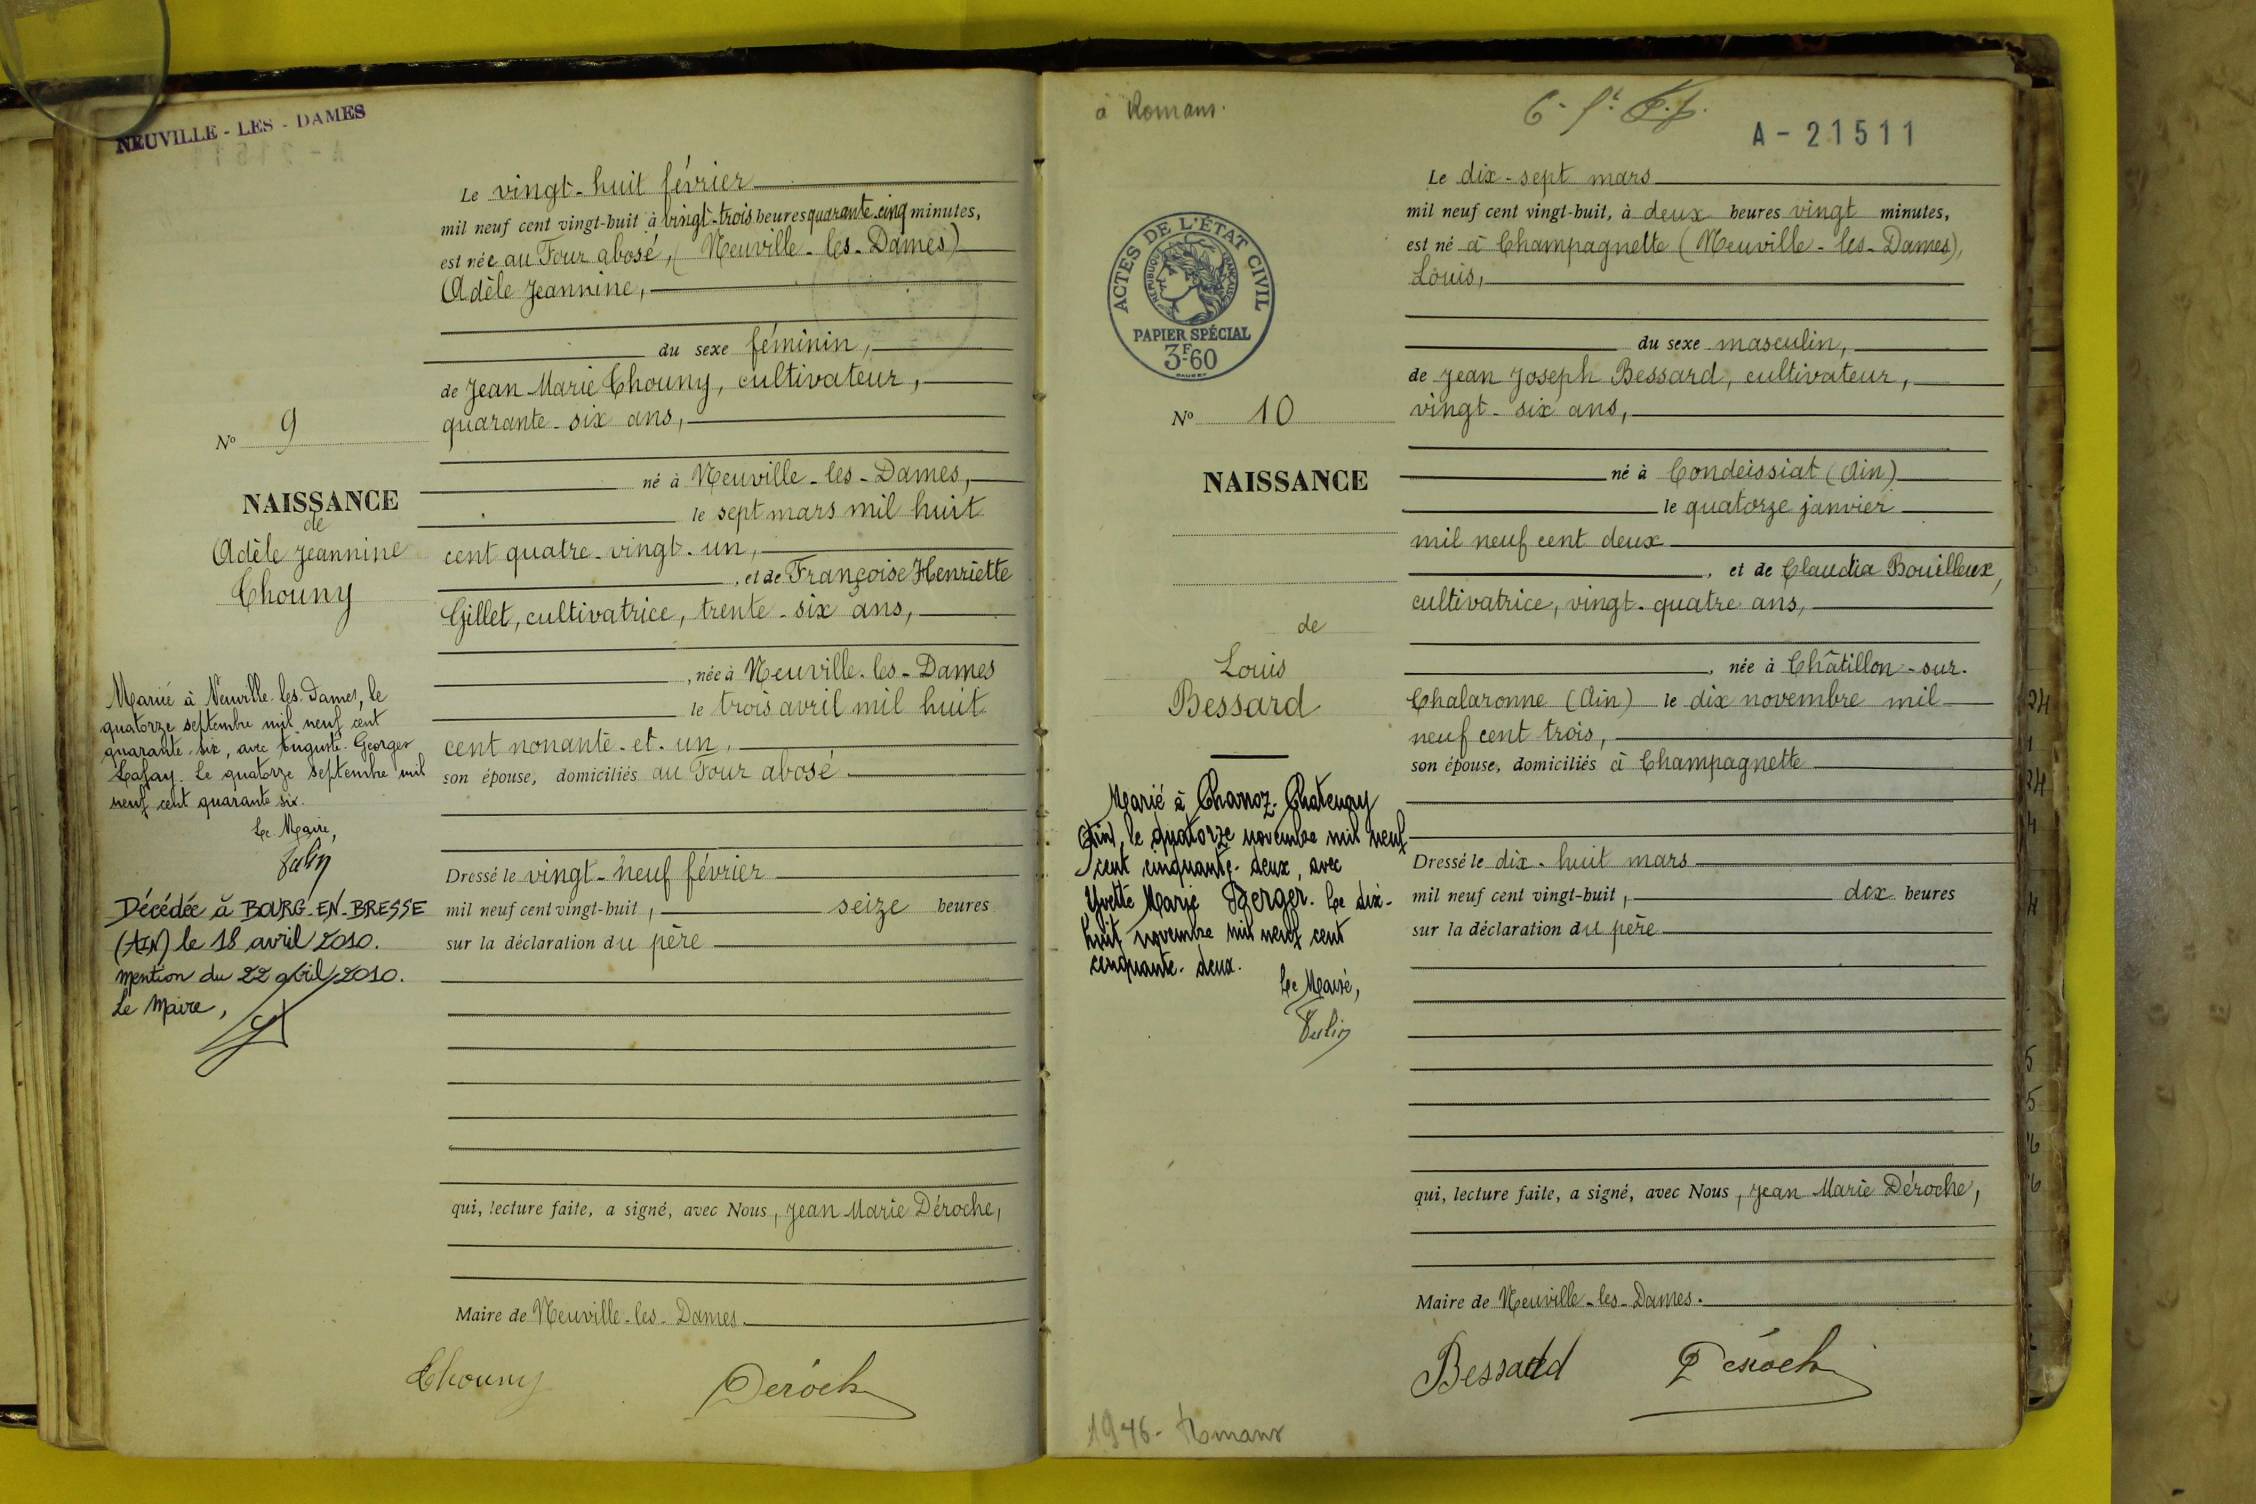 NEUVILLE - LES - DAMES
Le vingt-huit février
mil neuf cent vingt-huit à vingt-trois heures quarante-cinq minutes,
est née au Four abosé, (Neuville-les-Dames)
Adèle Jeannine,
du sexe féminin,
de Jean Marie Chouny, cultivateur,
quarante-six ans,
né à Neuville-les-Dames,
le sept mars mil huit
cent quatre-vingt-un,
, et de Françoise Henriette
Gillet, cultivatrice, trente-six ans,
, née à Neuville-les-Dames
le trois avril mil huit
cent nonante-et-un,
son épouse, domiciliés au Four abosé
Dressé le vingt-neuf février
mil neuf cent vingt-huit, seize heures
sur la déclaration du père
qui, lecture faite, a signé, avec Nous, Jean Marie Déroche,
Maire de Neuville-les-Dames.
Chouny Déroche
No 9
NAISSANCE
de
Adèle Jeannine
Chouny
Mariée à Neuville-les-Dames, le
quatorze septembre mil neuf cent
quarante-six, avec Auguste-Georges
Lafay. Le quatorze septembre mil
neuf cent quarante six.
Le Maire,
Décédée à BOURG-EN-BRESSE
(AIN) le 18 avril 2010.
mention du 22 avril 2010.
Le Maire,
à Romans.
A - 21511
ACTES DE L'ÉTAT CIVIL
RÉPUBLIQUE FRANÇAISE
PAPIER SPÉCIAL
3F60
No 10
NAISSANCE
de
Louis
Bessard
Marié à Chanoz-Chatenay
(Ain), le quatorze novembre mil neuf
cent cinquante-deux, avec
Yvette Marie Berger. Le dix-
huit novembre mil neuf cent
cinquante-deux.
Le Maire,
Le dix-sept mars
mil neuf cent vingt-huit, à deux heures vingt minutes,
est né à Champagnette (Neuville-les-Dames),
Louis,
du sexe masculin,
de Jean Joseph Bessard, cultivateur,
vingt-six ans,
né à Condeissiat (Ain)
le quatorze janvier
mil neuf cent deux
, et de Claudia Bouilleux,
cultivatrice, vingt-quatre ans,
, née à Châtillon-sur-
Chalaronne (Ain) le dix novembre mil
neuf cent trois,
son épouse, domiciliés à Champagnette
Dressé le dix-huit mars
mil neuf cent vingt-huit, dix heures
sur la déclaration du père
qui, lecture faite, a signé, avec Nous, Jean Marie Déroche,
Maire de Neuville-les-Dames.
Bessard Déroche
1946- Romans